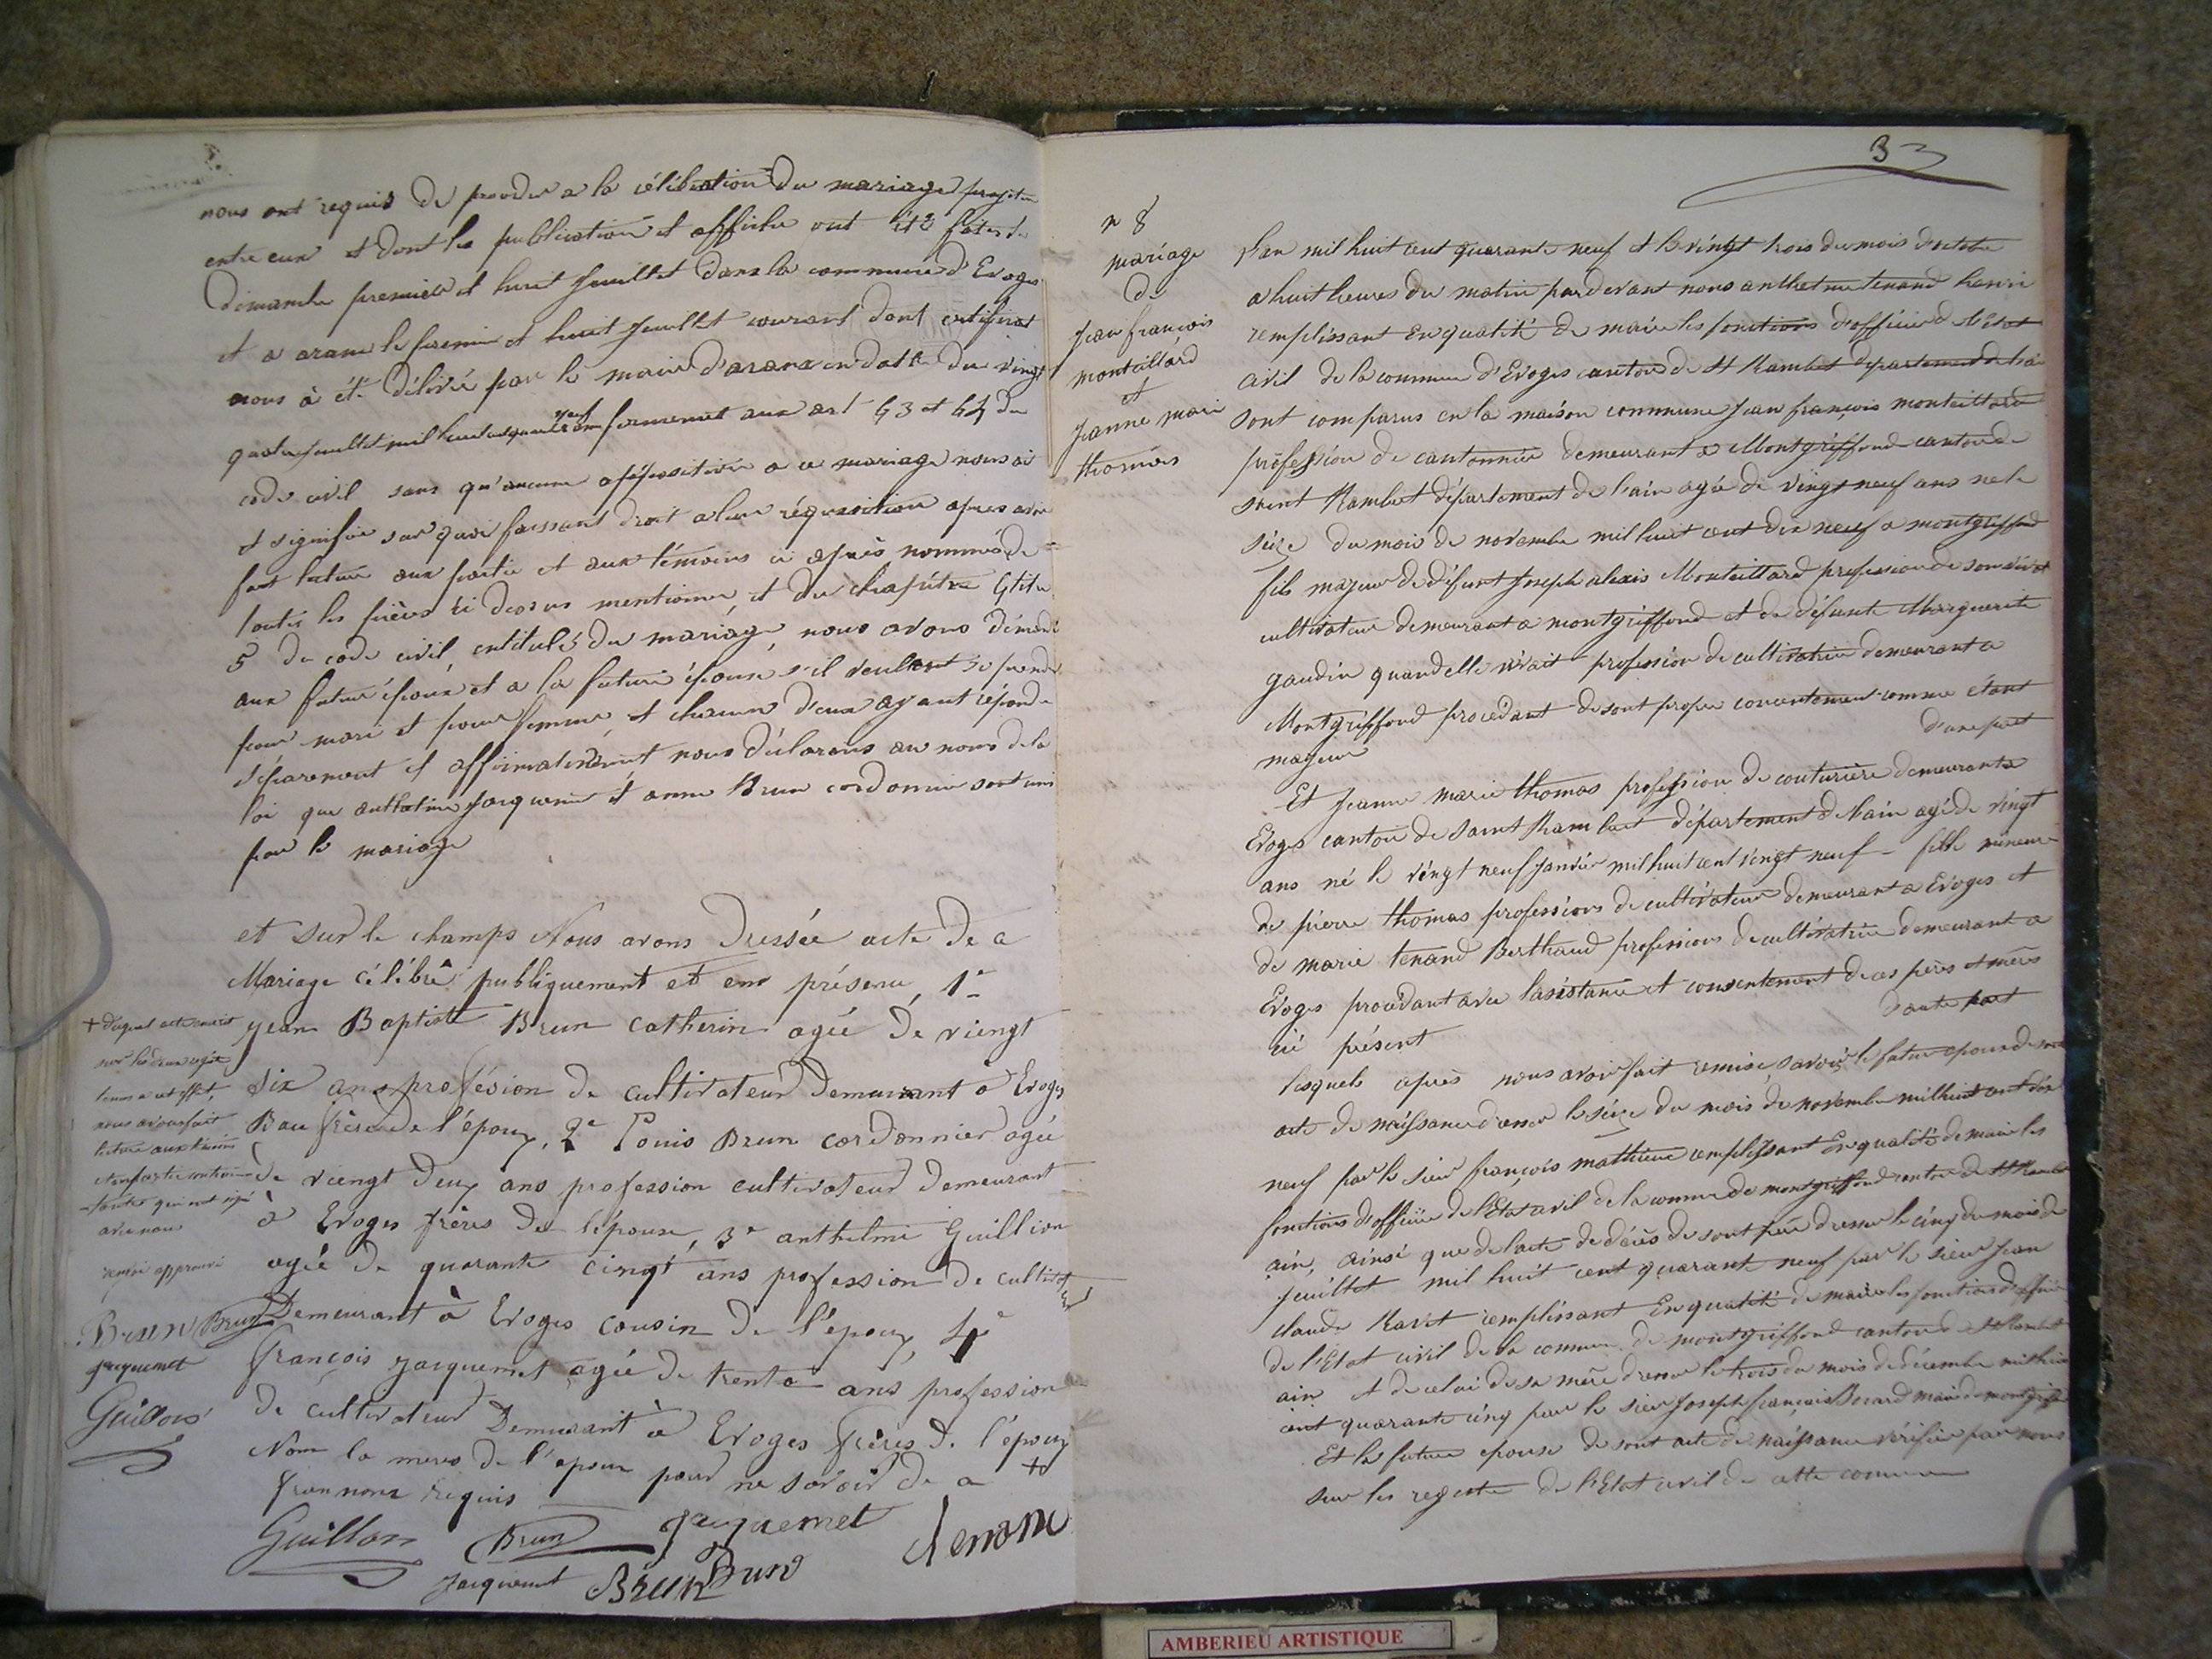 nous ont requis de proceder a la célébration du mariage projeter
entre eux et dont les publication et affiche ont été faites le
dimanche premier et huit Juillet dans la commune d'Evoges
et a aranc le premier et huit Juillet courant dont certificat
nous à été délivré par le maire d'aranc en datte du vingt
quatre Juillet mil huit cent quarante neuf conformement aux art 63 et 64 du
code civil sans qu'aucune opposition a ce mariage nous ai
et signifier sur quoi faissant droit a leur réquisition apres avoir
fait lecture aux partie et aux témoins ci après nommés de
toutes les pièces ci dessus mentionner, et du chapitre 6 titre
5 du code civil, entitulé du mariage, nous avons démandé
aux futur époux et a la future épouse s'il veulent se prendre
pour mari et pour femme, et chacun d'eux ayant répondu
séparement et affirmativement nous déclarons au nom de la
loi que anthelme Jacquemet et anne Brun cordonnier sont unis
par le mariage
et sur le champs Nous avons Dressée acte de ce
Mariage célébré publiquement et en présence, 1e
Jean Baptiste Brun Catherin agée De viengt
six ans profésion de cultivateur Demeurant à Evoges
Bau frère de l'époux, 2e Louis Brun cordonnier agée
de viengt deux ans profession cultivateur Demeurant
à Evoges frères de l'épouse, 3e anthelme Guillion
agée de quarante cinqt ans profession de cultivateur
Demeurant à Evoges cousin de l'époux, 4e
françois jacquemet agée de trente ans profession
de cultivateur Demeurant à Evoges frères de l'époux
Non la mere de l'epoux pour ne savoir de ce +
requis
Guillon Brun Jacquemet tenand
Jacquemet Brun Brun
+ duquel acte
sur les deux registre
tenus a cet effet,
nous avons fait
lecture aux témoins
et
avec nous
approuvé
Brun Brun
Jacquemet
Guillon
3
n 8
mariage
de
Jean françois
montaillard
et
Jeanne marie
thomas
L'an mil huit cent quarante neuf et le vingt trois du mois d'octobre
a huit heures du matin pardevant nous anthelme tenand henri
remplissant En qualité de maire les fonctions d'officier de l'état
civil de la commune d'Evoges canton de St Rambert département de l'ain
sont comparus en la maison commune Jean françois montaillard
profession de cantonnier demeurant a Montgriffond canton de
saint Rambert département de l'ain agé de vingt neuf ans né le
seize du mois de novembre mil huit cent dix neuf a montgriffond
fils majeur de défunt Joseph alexis Montaillard profession de son vivant
cultivateur demeurant a montgriffond et de défunte Marguerite
gaudin quand elle vivait profession de cultivatrice demeurant a
Montgriffond procédant de sont propre consentement comme étant
majeur d'une part
Et Jeanne marie thomas profession de couturière demeurant a
Evoges canton de saint Rambert département de l'ain agé de vingt
ans né le vingt neuf Janvier mil huit cent vingt neuf - fille mineure
de pierre thomas professions de cultivateur demeurant a Evoges et
de marie tenand Berthaud professions de cultivatrice demeurant a
Evoges procédant avec l'asistance et consentement de ces pères et mères
ici présent d'aute part
lesquels après nous avoir fait remise, savoir, le futur epoux de son
acte de naissance dresser le seize du mois de novembre mil huit cent dix
neuf par le sieur françois mathieu remplissant En qualité de maire les
fonctions d'officier de l'Etat civil de la commune de montgriffond canton de St Rambert
ain, ainsi que de l'acte de décès de sont père dresser le cinq du mois de
Juillet mil huit cent quarant neuf par le sieur Jean
claude Ravet remplissant En qualité de maire les fonctions d'officier
de l'Etat civil de la commune de montgriffond canton de St Rambert
ain et de celui de sa mère dresser le trois du mois de décembre mil huit
cent quarante cinq par le sieur Joseph françois Bozard maire de montgriffond
Et la future epouse de sont acte de naissance vérifier par nous
sur les registre de l'Etat civil de cette commune
AMBERIEU ARTISTIQUE